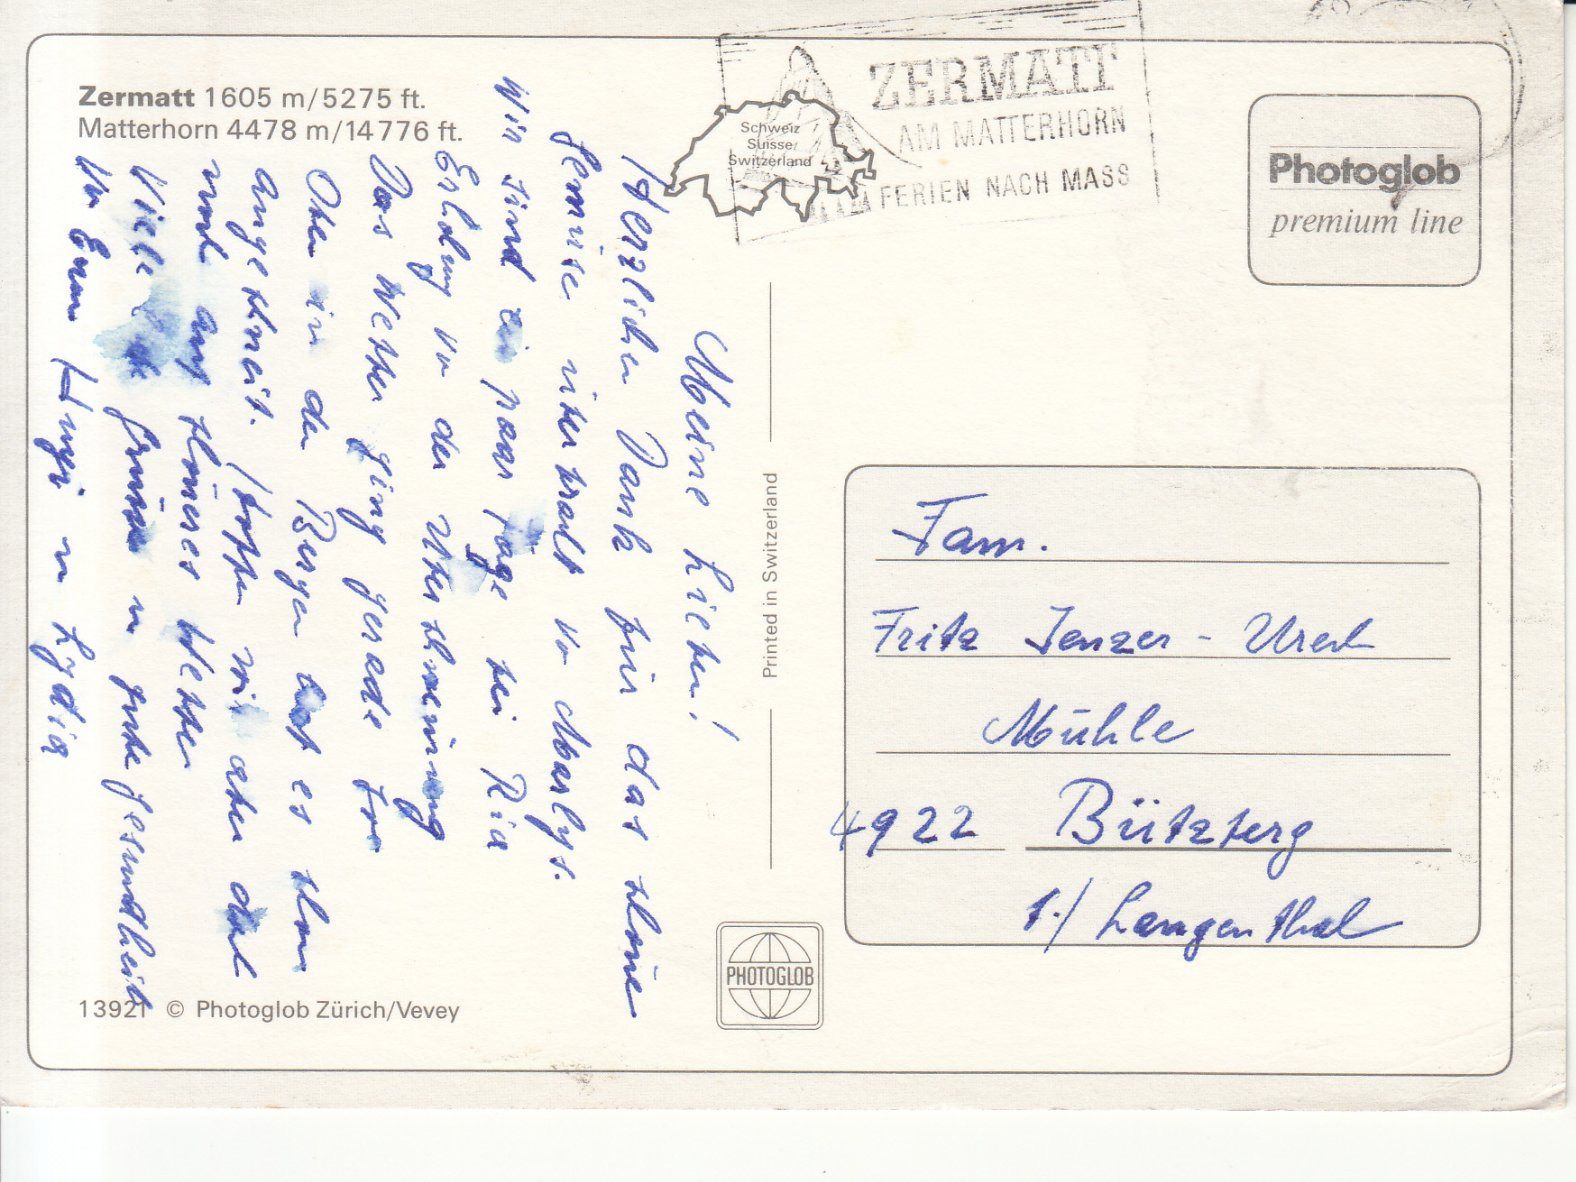 Zermatt 1605 m/5275 ft.
Matterhorn 4478 m/14776 ft.
Schweiz
Suisse
Switzerland
ZERMATT
AM MATTERHORN
FERIEN NACH MASS
Photoglob
premium line
Meine Lieben!
Herzlichen Dank für das schöne
Gemüse überbracht von Marlys.
Wir sind ein paar Tage bei Ria
Erholung von der Überschwemmung
Das Wetter ging gerade
Oben in den Bergen hat es schon
angeschneit. Hoffen wir aber doch
noch auf schöneres Wetter
Viele Grüsse u gute Gesundheit
von Euren Hugi u Lydia
Printed in Switzerland
Fam.
Fritz Jenzer - Urech
Mühle
4922 Bützberg
b./ Langenthal
PHOTOGLOB
13921 © Photoglob Zürich/Vevey